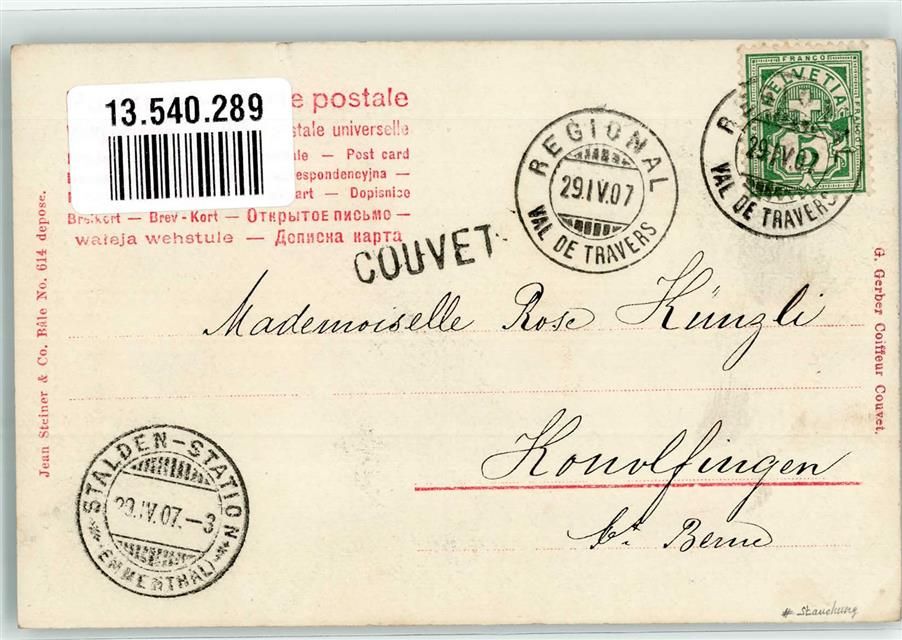 13.540.289
e postale
stale universelle
– Post card
espondencyjna –
art – Dopisnice
Brefkort – Brev-Kort – Открытое письмо –
wáleja wehstule – Дописна карта
COUVET
REGIONAL
29.IV.07
VAL DE TRAVERS
FRANCO
HELVETIA
FRANCO
5
RE
29.IV.07
VAL DE TRAVERS
Jean Steiner & Co. Bâle No. 614 depose.
G. Gerber Coiffeur Couvet.
Mademoiselle Rose Künzli
Konolfingen
Ct. Berne
STALDEN-STATION
29.IV.07.-3
(EMMENTHAL)
# Stauchung